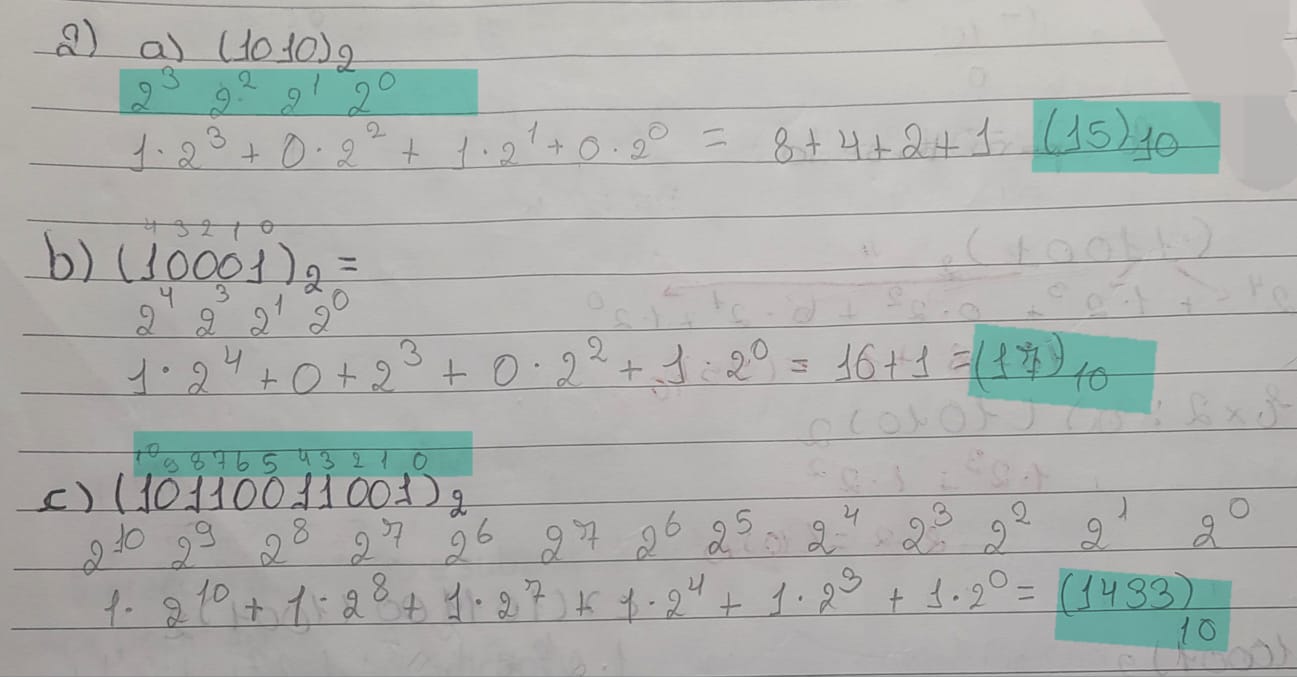 2) a) (1010)₂
2³ 2² 2¹ 2⁰
1·2³ + 0·2² + 1·2¹ + 0·2⁰ = 8+4+2+1 (15)₁₀
4 3 2 1 0
b) (10001)₂ =
2⁴ 2³ 2¹ 2⁰
1·2⁴ + 0+2³ + 0·2² + 1·2⁰ = 16+1 = (17)₁₀
10 9 8 7 6 5 4 3 2 1 0
c) (10110011001)₂
2¹⁰ 2⁹ 2⁸ 2⁷ 2⁶ 2⁷ 2⁶ 2⁵ 2⁴ 2³ 2² 2¹ 2⁰
1·2¹⁰ + 1·2⁸ + 1·2⁷ + 1·2⁴ + 1·2³ + 1·2⁰ = (1433)₁₀